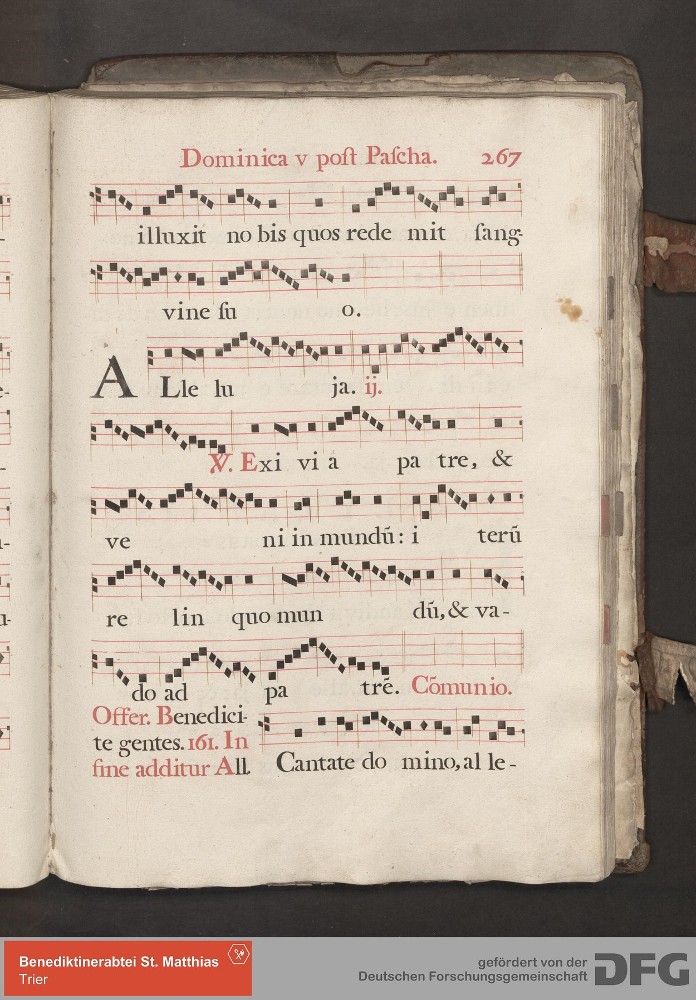 Dominica v poſt Paſcha. 267
illuxit no bis quos rede mit ſang-
vine ſu o.
A Lle lu ja. ij.
℣. Exi vi a pa tre, &
ve ni in mundū: i terū
re lin quo mun dū, & va-
do ad pa trē. Cōmunio.
Offer. Benedici-
te gentes. 161. In
fine additur All. Cantate do mino, al le-
Benediktinerabtei St. Matthias
Trier
gefördert von der
Deutschen Forschungsgemeinschaft
DFG